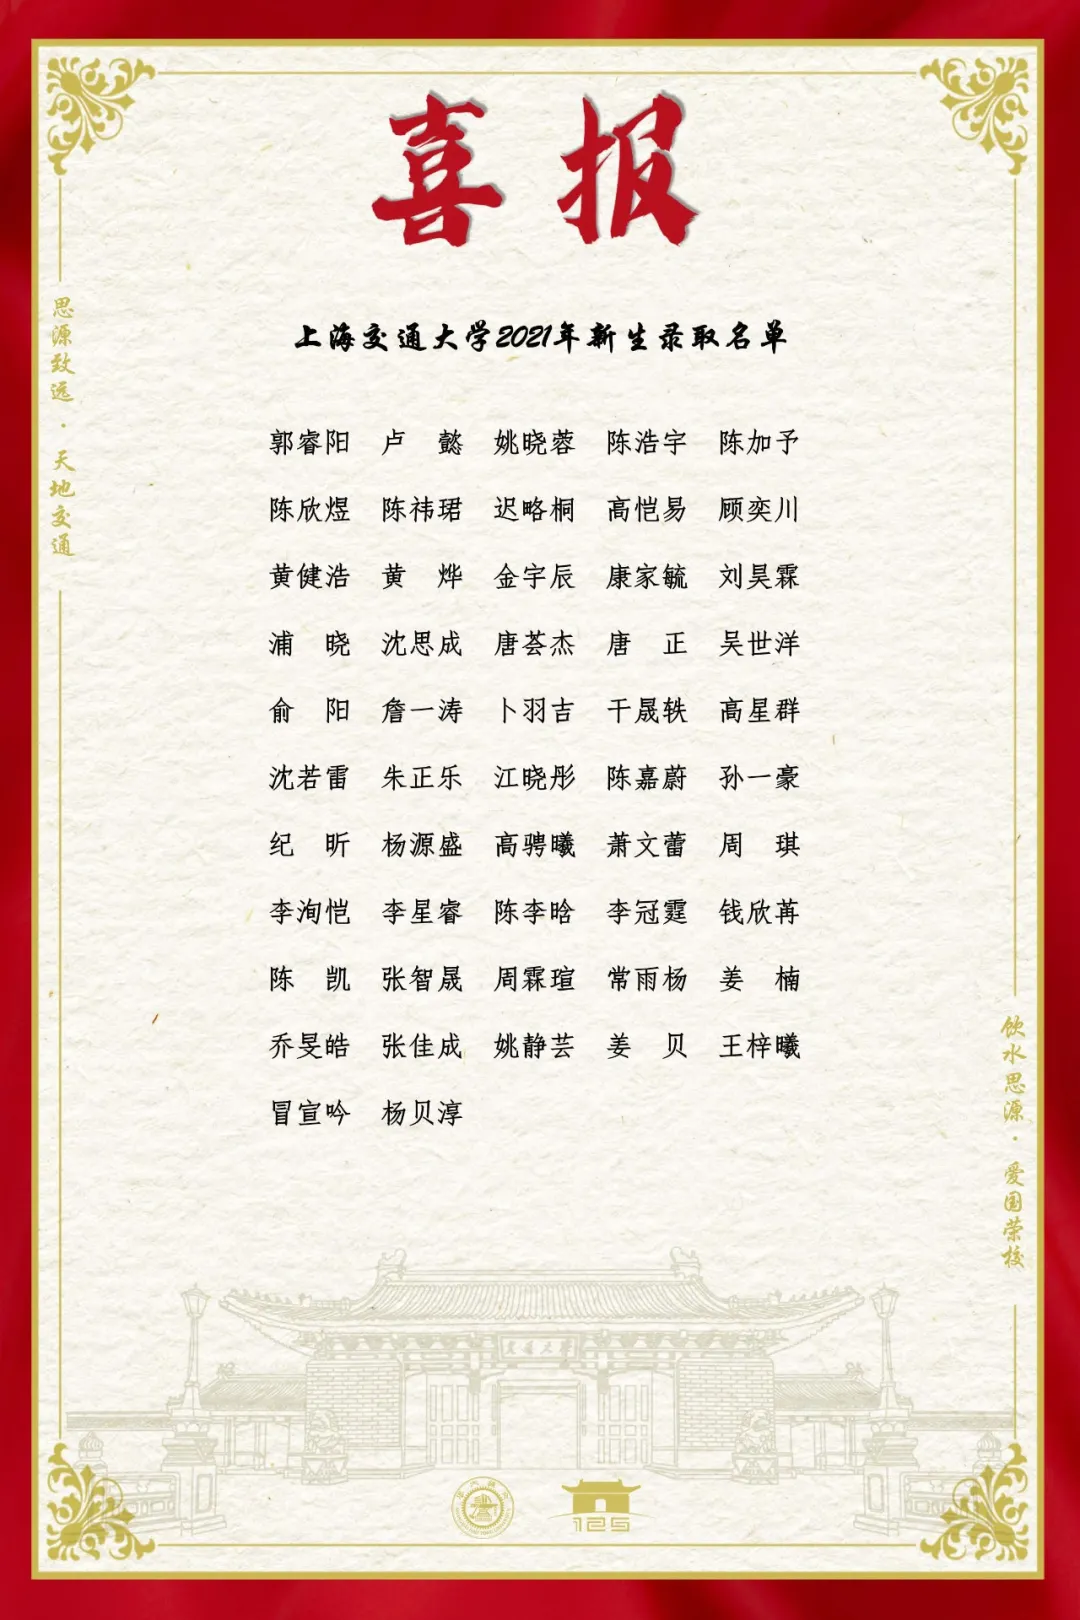 喜报
上海交通大学2021年新生录取名单
思源致远·天地交通
郭睿阳 卢懿 姚晓蓉 陈浩宇 陈加予
陈欣煜 陈祎珺 迟略桐 高恺易 顾奕川
黄健浩 黄烨 金宇辰 康家毓 刘昊霖
浦晓 沈思成 唐荟杰 唐正 吴世洋
俞阳 詹一涛 卜羽吉 干晟轶 高星群
沈若雷 朱正乐 江晓彤 陈嘉蔚 孙一豪
纪昕 杨源盛 高骋曦 萧文蕾 周琪
李洵恺 李星睿 陈李晗 李冠霆 钱欣苒
陈凯 张智晟 周霖瑄 常雨杨 姜楠
乔旻皓 张佳成 姚静芸 姜贝 王梓曦
冒宣吟 杨贝淳
饮水思源·爱国荣校
125